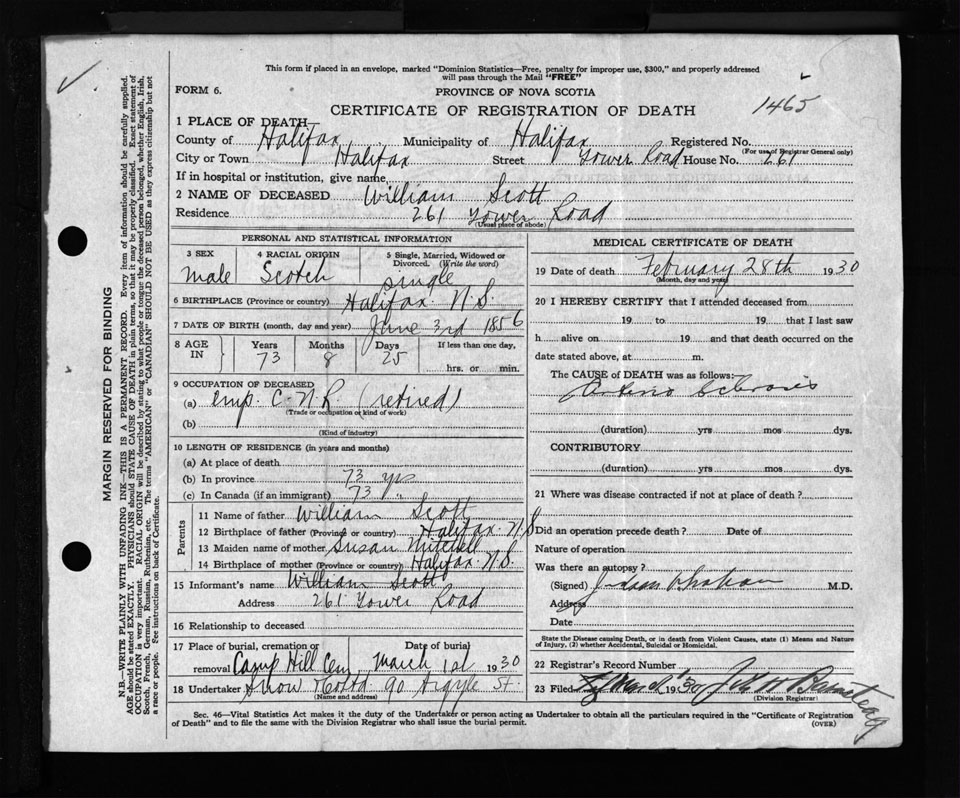 This form if placed in an envelope, marked "Dominion Statistics—Free, penalty for improper use, $300," and properly addressed
will pass through the Mail "FREE"
FORM 6.
PROVINCE OF NOVA SCOTIA
CERTIFICATE OF REGISTRATION OF DEATH
1465
1 PLACE OF DEATH
County of Halifax Municipality of Halifax Registered No.
(For use of Registrar General only)
City or Town Halifax Street Tower Road House No. 261
If in hospital or institution, give name
2 NAME OF DECEASED William Scott
Residence 261 Tower Road
(Usual place of abode)
PERSONAL AND STATISTICAL INFORMATION
3 SEX male
4 RACIAL ORIGIN Scotch
5 Single, Married, Widowed or Divorced. (Write the word) single
6 BIRTHPLACE (Province or country) Halifax N.S.
7 DATE OF BIRTH (month, day and year) June 3rd 1856
8 AGE IN Years 73 Months 8 Days 25 If less than one day, hrs. or min.
9 OCCUPATION OF DECEASED
(a) emp. C.N.R. (retired)
(Trade or occupation or kind of work)
(b)
(Kind of industry)
10 LENGTH OF RESIDENCE (in years and months)
(a) At place of death
(b) In province 73 yrs
(c) In Canada (if an immigrant) 73 "
Parents
11 Name of father William Scott
12 Birthplace of father (Province or country) Halifax N.S
13 Maiden name of mother Susan Mitchell
14 Birthplace of mother (Province or country) Halifax N.S.
15 Informant's name William Scott
Address 261 Tower Road
16 Relationship to deceased
17 Place of burial, cremation or removal Camp Hill Cem Date of burial March 1st 1930
18 Undertaker Snow & Co Ltd 90 Argyle St
(Name and address)
MEDICAL CERTIFICATE OF DEATH
19 Date of death February 28th 1930
(Month, day and year)
20 I HEREBY CERTIFY that I attended deceased from
19 to 19 that I last saw
h alive on 19 and that death occurred on the
date stated above, at m.
The CAUSE of DEATH was as follows:
Arterio Sclerosis
(duration) yrs mos dys.
CONTRIBUTORY
(duration) yrs mos dys.
21 Where was disease contracted if not at place of death?
Did an operation precede death? Date of
Nature of operation
Was there an autopsy?
(Signed) M.D.
Address
Date
State the Disease causing Death, or in death from Violent Causes, state (1) Means and Nature
of Injury, (2) whether Accidental, Suicidal or Homicidal.
22 Registrar's Record Number
23 Filed March 1930
(Division Registrar)
Sec. 46—Vital Statistics Act makes it the duty of the Undertaker or person acting as Undertaker to obtain all the particulars required in the "Certificate of Registration
of Death" and to file the same with the Division Registrar who shall issue the burial permit.
(OVER)
MARGIN RESERVED FOR BINDING
N.B.—WRITE PLAINLY WITH UNFADING INK—THIS IS A PERMANENT RECORD. Every item of information should be carefully supplied.
AGE should be stated EXACTLY. PHYSICIANS should STATE CAUSE OF DEATH in plain terms, so that it may be properly classified. Exact statement of
OCCUPATION is very important. RACIAL ORIGIN will be described by stating to what people or tongue the deceased person belonged, whether English, Irish,
Scotch, French, German, Russian, Ruthenian, etc. The terms "AMERICAN" or "CANADIAN" SHOULD NOT BE USED as they express citizenship but not
a race or people. See instructions on back of Certificate.